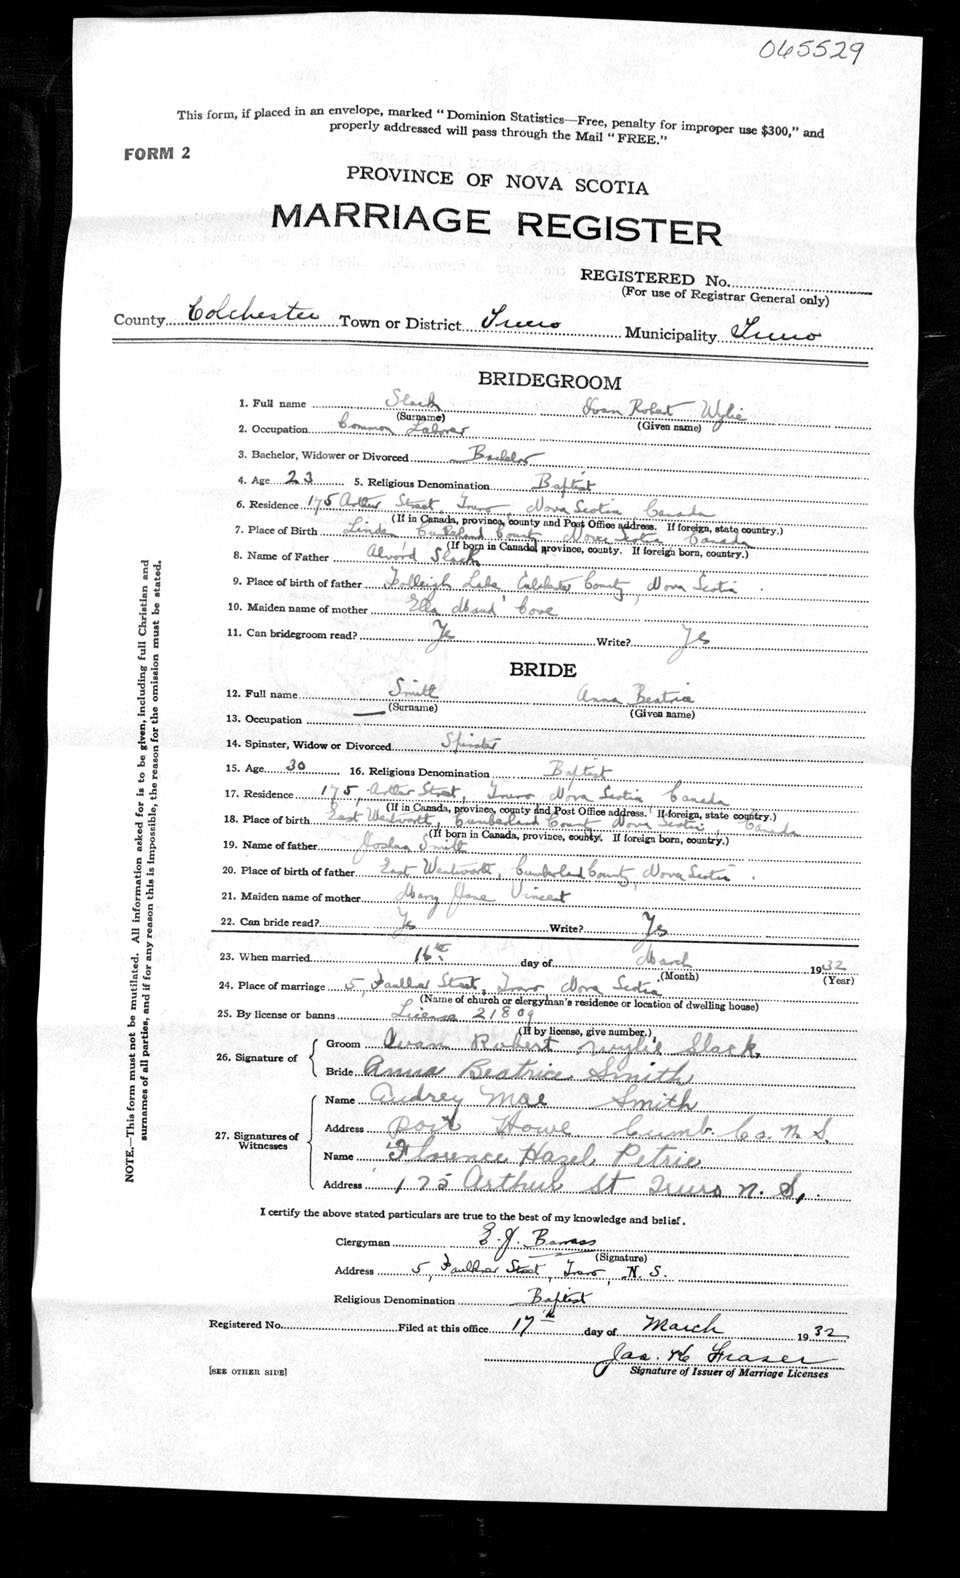 065529
This form, if placed in an envelope, marked "Dominion Statistics—Free, penalty for improper use $300," and
properly addressed will pass through the Mail "FREE."
FORM 2
PROVINCE OF NOVA SCOTIA
MARRIAGE REGISTER
REGISTERED No.
(For use of Registrar General only)
County Colchester Town or District Truro Municipality Truro
BRIDEGROOM
1. Full name Slack Ivan Robert Wylie
(Surname) (Given name)
2. Occupation Common Laborer
3. Bachelor, Widower or Divorced Bachelor
4. Age 23 5. Religious Denomination Baptist
6. Residence 175 Arthur Street, Truro, Nova Scotia Canada
(If in Canada, province, county and Post Office address. If foreign, state country.)
7. Place of Birth Linden Cumberland County Nova Scotia Canada
(If born in Canada, province, county. If foreign born, country.)
8. Name of Father Alvord Slack
9. Place of birth of father Folleigh Lake Colchester County, Nova Scotia
10. Maiden name of mother Ella Maud Cove
11. Can bridegroom read? Yes Write? Yes
BRIDE
12. Full name Smith Anna Beatrice
(Surname) (Given name)
13. Occupation —
14. Spinster, Widow or Divorced Spinster
15. Age 30 16. Religious Denomination Baptist
17. Residence 175, Arthur Street, Truro Nova Scotia Canada
(If in Canada, province, county and Post Office address. If foreign, state country.)
18. Place of birth East Wentworth, Cumberland County Nova Scotia, Canada
(If born in Canada, province, county. If foreign born, country.)
19. Name of father Joshua Smith
20. Place of birth of father East Wentworth, Cumberland County, Nova Scotia.
21. Maiden name of mother Mary Jane Vincent
22. Can bride read? Yes Write? Yes
23. When married 16th day of March 1932
(Month) (Year)
24. Place of marriage 5, Faulkner Street, Truro Nova Scotia
(Name of church or clergyman's residence or location of dwelling house)
25. By license or banns License 21809
(If by license, give number.)
26. Signature of Groom Ivan Robert Wylie Slack
Bride Anna Beatrice Smith
27. Signatures of Witnesses Name Audrey Mae Smith
Address Port Howe Cumb. Co. N.S.
Name Florence Hazel Petrie
Address 175 Arthur St Truro N.S.
I certify the above stated particulars are true to the best of my knowledge and belief.
Clergyman E. J. Barrass
(Signature)
Address 5, Faulkner Street, Truro, N.S.
Religious Denomination Baptist
Registered No. Filed at this office 17th day of March 1932
Jas. H Fraser
[SEE OTHER SIDE] Signature of Issuer of Marriage Licenses
NOTE.—This form must not be mutilated. All information asked for is to be given, including full Christian and
surnames of all parties, and if for any reason this is impossible, the reason for the omission must be stated.